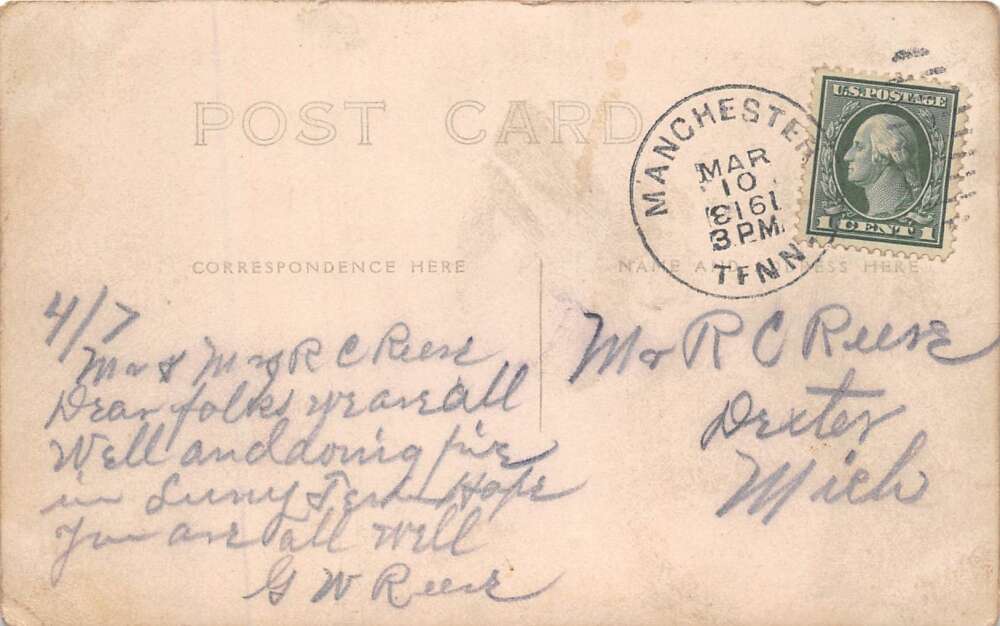 POST CARD
MANCHESTER
TENN.
MAR
10
1916
3 PM
U.S. POSTAGE
1 CENT 1
CORRESPONDENCE HERE
NAME AND ADDRESS HERE
4/7
Mr & Mrs R C Reese
Dear folks we are all
Well and doing fine
in Suny Tenn Hope
You are all well
G W Reese
Mr R C Reese
Dexter
Mich